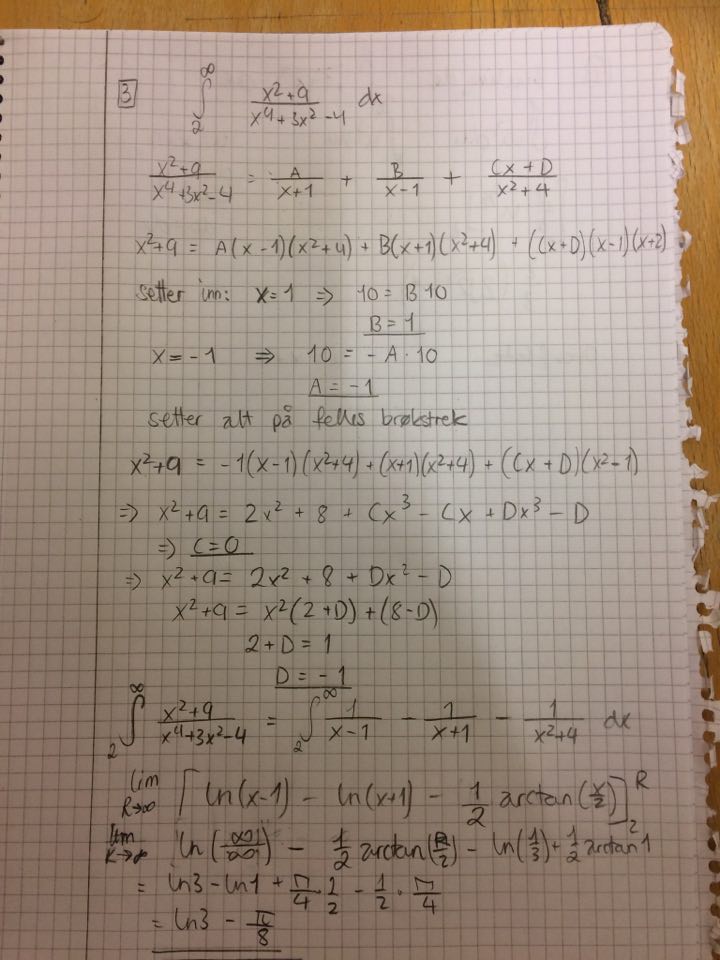 3 ∫₂^∞ (x²+9)/(x⁴+3x²-4) dx
(x²+9)/(x⁴+3x²-4) = A/(x+1) + B/(x-1) + (Cx+D)/(x²+4)
x²+9 = A(x-1)(x²+4) + B(x+1)(x²+4) + (Cx+D)(x-1)(x+2)
setter inn: x=1 ⇒ 10 = B 10
B = 1
x = -1 ⇒ 10 = -A·10
A = -1
setter alt på felles brøkstrek
x²+9 = -1(x-1)(x²+4) + (x+1)(x²+4) + (Cx+D)(x²-1)
⇒ x²+9 = 2x² + 8 + Cx³ - Cx + Dx³ - D
⇒ C=0
⇒ x²+9 = 2x² + 8 + Dx² - D
x²+9 = x²(2+D) + (8-D)
2+D = 1
D = -1
∫₂^∞ (x²+9)/(x⁴+3x²-4) = ∫₂^∞ 1/(x-1) - 1/(x+1) - 1/(x²+4) dx
lim R→∞ [ln(x-1) - ln(x+1) - 1/2 arctan(x/2)]₂^R
lim R→∞ ln() - 1/2 arctan(R/2) - ln(1/3) + 1/2 arctan 1
= ln3 - ln1 + π/4 · 1/2 - 1/2 · π/4
= ln3 - π/8